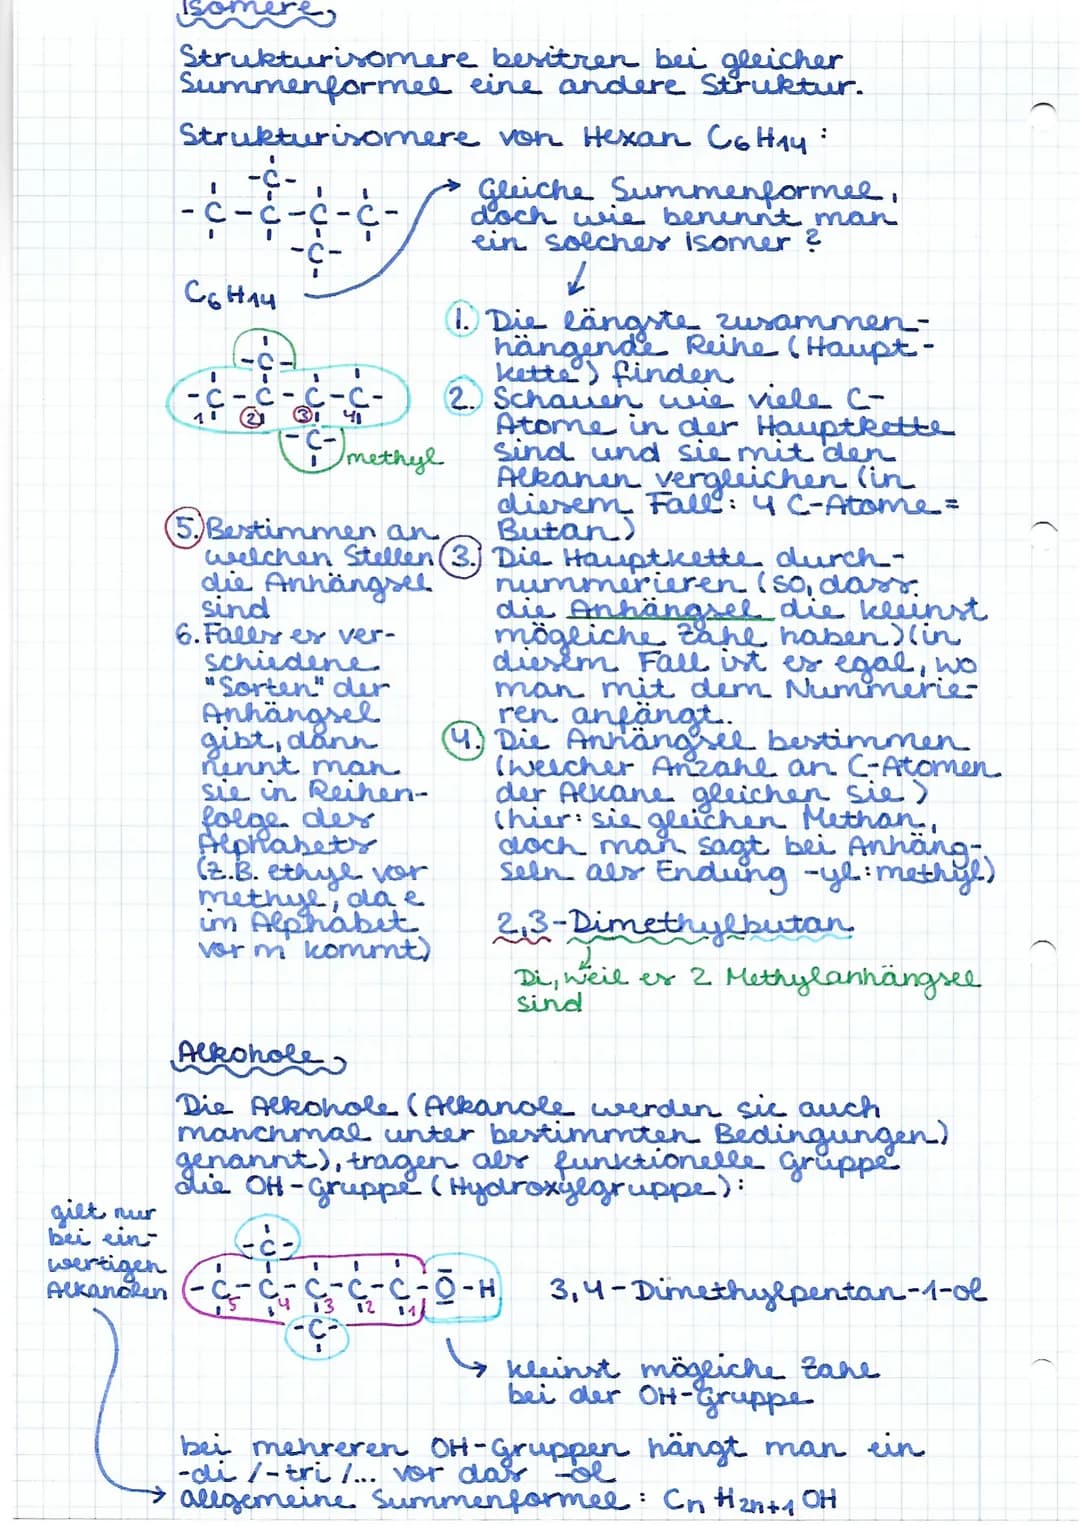 Isomere
Strukturisomere besitzen bei gleicher
Summenformel eine andere Struktur.
Strukturisomere von Hexan C6H14:
-C-
-C-C-C-C-
-C-
C6H14
Gleiche Summenformel,
doch wie benennt man
ein solches Isomer?
-C-
-C-C-C-C-
1 2 3 4
-C-
methyl
1. Die längste zusammen-
hängende Reihe (Haupt-
kette) finden
2. Schauen wie viele C-
Atome in der Hauptkette
sind und sie mit den
Alkanen vergleichen (in
diesem Fall: 4 C-Atome =
Butan)
3. Die Hauptkette durch-
nummerieren (so, dass
die Anhängsel die kleinst
mögliche Zahl haben) (in
diesem Fall ist es egal, wo
man mit dem Nummerie-
ren anfängt.
4. Die Anhängsel bestimmen
(welcher Anzahl an C-Atomen
der Alkane gleichen sie)
(hier: sie gleichen Methan,
doch man sagt bei Anhäng-
seln als Endung -yl: methyl)
5. Bestimmen an
welchen Stellen
die Anhängsel
sind
6. Falls es ver-
schiedene
"Sorten" der
Anhängsel
gibt, dann
nennt man
sie in Reihen-
folge des
Alphabets
(z.B. ethyl vor
methyl, da e
im Alphabet
vor m kommt)
2,3-Dimethylbutan
Di, weil es 2 Methylanhängsel
sind
Alkohole
Die Alkohole (Alkanole werden sie auch
manchmal unter bestimmten Bedingungen)
genannt), tragen als funktionelle Gruppe
die OH-Gruppe (Hydroxylgruppe):
gilt nur
bei ein-
wertigen
Alkanolen
-C-
-C-C-C-C-C-O-H
5 4 3 2 1
-C-
3,4-Dimethylpentan-1-ol
kleinst mögliche Zahl
bei der OH-Gruppe
bei mehreren OH-Gruppen hängt man ein
-di/-tri/... vor das -ol
allgemeine Summenformel: CnH2n+1OH